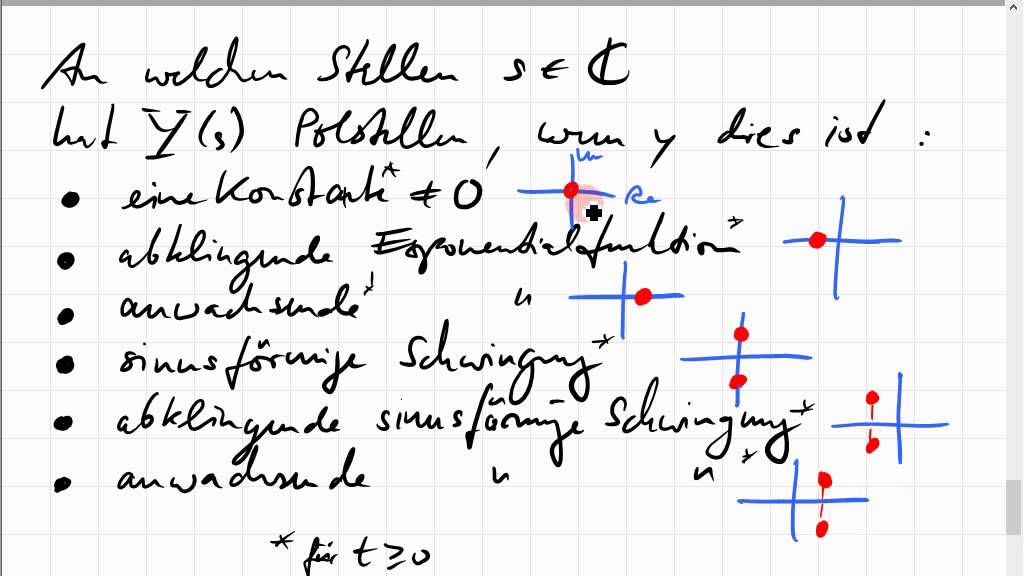 An welchen Stellen s ∈ ℂ
hat Y(s) Polstellen, wenn y dies ist :
• eine Konstante* ≠ 0 Im Re
• abklingende Exponentialfunktion*
• anwachsende* "
• sinusförmige Schwingung*
• abklingende sinusförmige Schwingung*
• anwachsende " "*
* für t ≥ 0